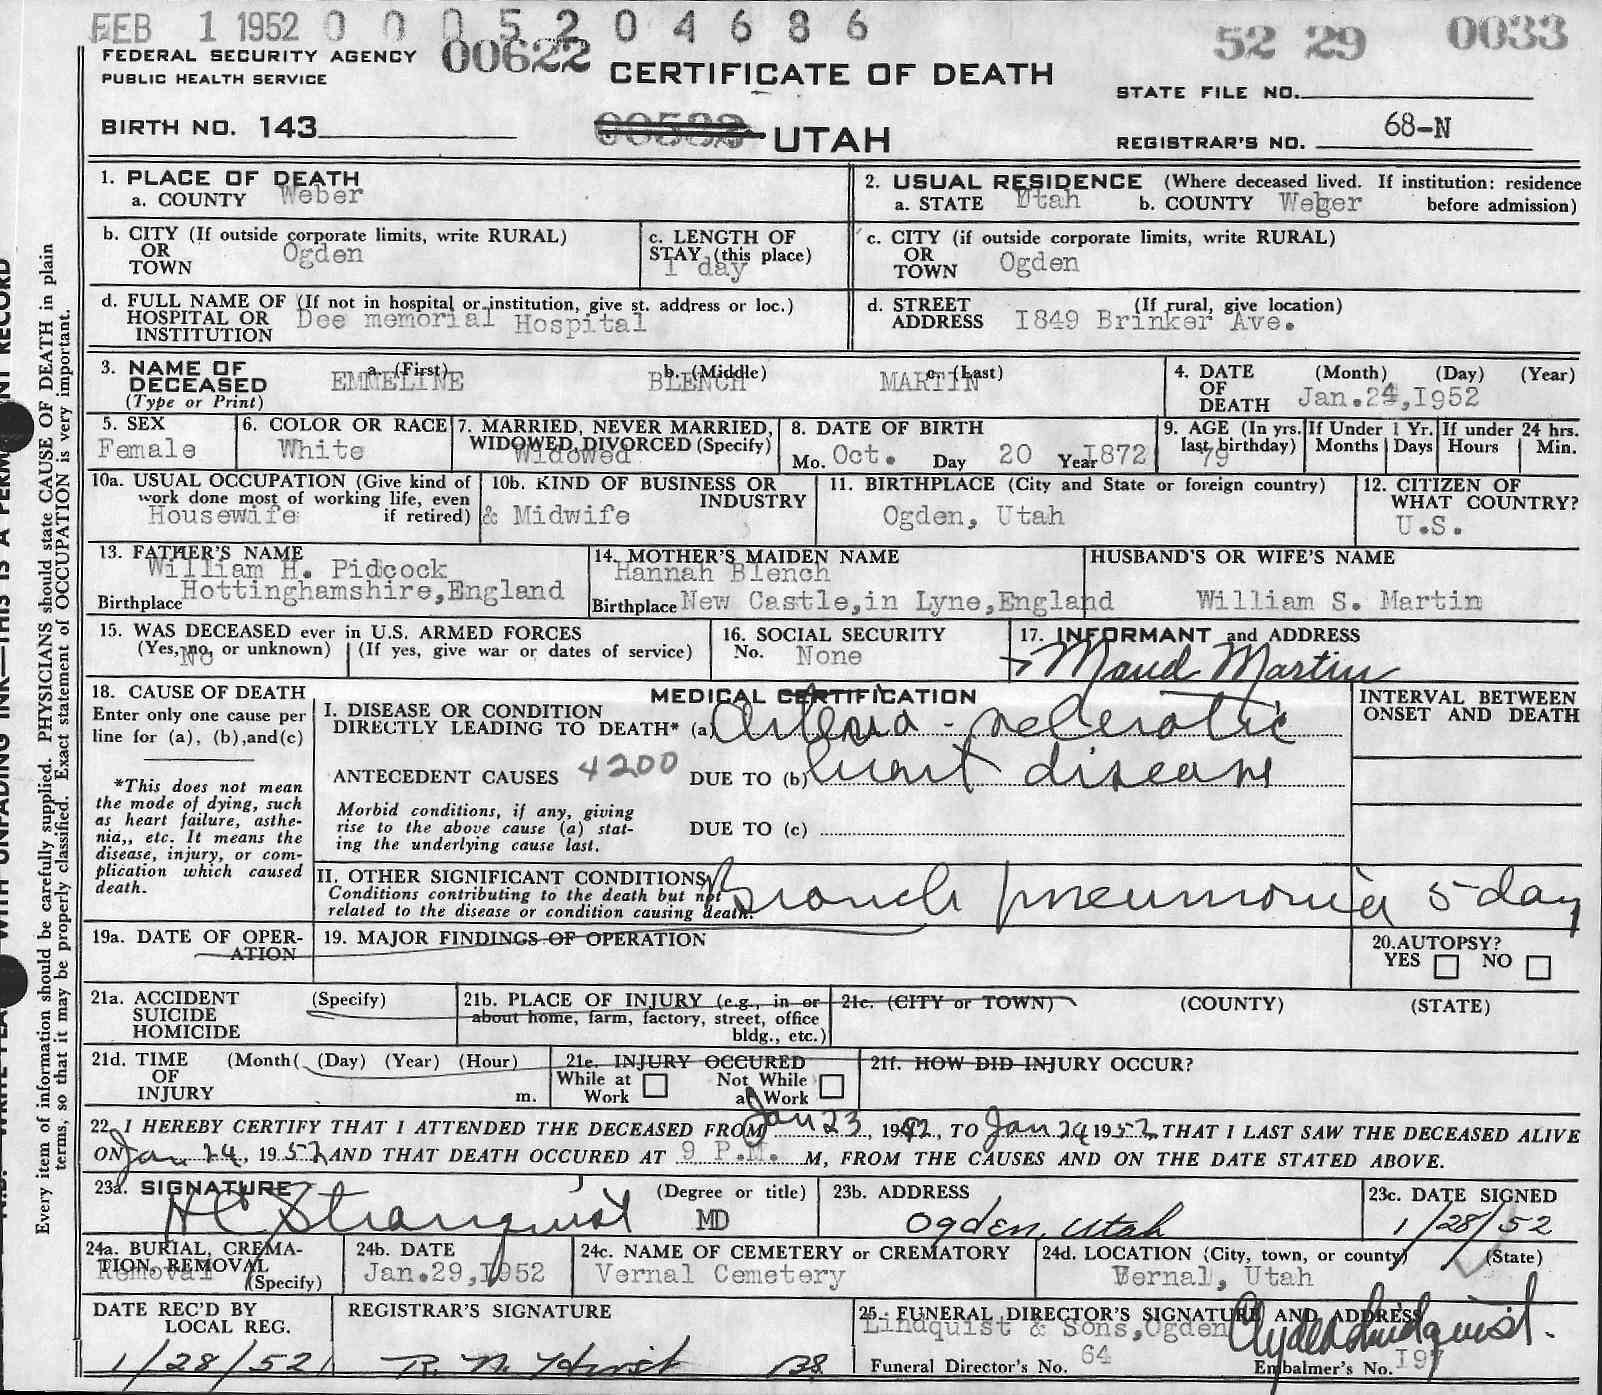 FEB 1 1952 0 0 0 5 2 0 4 6 8 6
52 29 0033
FEDERAL SECURITY AGENCY 00622
PUBLIC HEALTH SERVICE
CERTIFICATE OF DEATH
STATE FILE NO.
BIRTH NO. 143
UTAH
REGISTRAR'S NO. 68-N
1. PLACE OF DEATH
a. COUNTY Weber
2. USUAL RESIDENCE (Where deceased lived. If institution: residence
a. STATE Utah b. COUNTY Weber before admission)
b. CITY (If outside corporate limits, write RURAL)
OR
TOWN Ogden
c. LENGTH OF
STAY (this place)
1 day
c. CITY (if outside corporate limits, write RURAL)
OR
TOWN Ogden
d. FULL NAME OF (If not in hospital or institution, give st. address or loc.)
HOSPITAL OR Dee memorial Hospital
INSTITUTION
d. STREET (If rural, give location)
ADDRESS I849 Brinker Ave.
3. NAME OF a. (First) b. (Middle) c. (Last)
DECEASED EMMELINE BLENCH MARTIN
(Type or Print)
4. DATE (Month) (Day) (Year)
OF
DEATH Jan.24,I952
5. SEX
Female
6. COLOR OR RACE
White
7. MARRIED, NEVER MARRIED,
WIDOWED, DIVORCED (Specify)
Widowed
8. DATE OF BIRTH
Mo. Oct. Day 20 Year I872
9. AGE (In yrs.
last birthday)
79
If Under 1 Yr.
Months Days
If under 24 hrs.
Hours Min.
10a. USUAL OCCUPATION (Give kind of
work done most of working life, even
if retired)
Housewife
10b. KIND OF BUSINESS OR
INDUSTRY
& Midwife
11. BIRTHPLACE (City and State or foreign country)
Ogden, Utah
12. CITIZEN OF
WHAT COUNTRY?
U.S.
13. FATHER'S NAME
William H. Pidcock
Birthplace Hottinghamshire,England
14. MOTHER'S MAIDEN NAME
Hannah Blench
Birthplace New Castle,in Lyne,England
HUSBAND'S OR WIFE'S NAME
William S. Martin
15. WAS DECEASED ever in U.S. ARMED FORCES
(Yes, no, or unknown) (If yes, give war or dates of service)
No
16. SOCIAL SECURITY
No. None
17. INFORMANT and ADDRESS
Maud Martin
18. CAUSE OF DEATH
Enter only one cause per
line for (a), (b),and(c)
*This does not mean
the mode of dying, such
as heart failure, asthe-
nia,, etc. It means the
disease, injury, or com-
plication which caused
death.
MEDICAL CERTIFICATION
I. DISEASE OR CONDITION
DIRECTLY LEADING TO DEATH* (a) Arterio-sclerotic
ANTECEDENT CAUSES 4200 DUE TO (b) heart disease
Morbid conditions, if any, giving
rise to the above cause (a) stat-
ing the underlying cause last.
DUE TO (c)
INTERVAL BETWEEN
ONSET AND DEATH
II. OTHER SIGNIFICANT CONDITIONS
Conditions contributing to the death but not
related to the disease or condition causing death.
Bronch pneumonia 5 day
19a. DATE OF OPER-
ATION
19. MAJOR FINDINGS OF OPERATION
20.AUTOPSY?
YES NO
21a. ACCIDENT (Specify)
SUICIDE
HOMICIDE
21b. PLACE OF INJURY (e.g., in or
about home, farm, factory, street, office
bldg., etc.)
21c. (CITY or TOWN) (COUNTY) (STATE)
21d. TIME (Month( (Day) (Year) (Hour)
OF
INJURY m.
21e. INJURY OCCURED
While at Work Not While at Work
21f. HOW DID INJURY OCCUR?
22. I HEREBY CERTIFY THAT I ATTENDED THE DECEASED FROM Jan 23, 1952, TO Jan 24 1952 THAT I LAST SAW THE DECEASED ALIVE
ON Jan 24, 1952 AND THAT DEATH OCCURED AT 9 P.M. M, FROM THE CAUSES AND ON THE DATE STATED ABOVE.
23a. SIGNATURE (Degree or title)
H C Stranquist MD
23b. ADDRESS
Ogden, Utah
23c. DATE SIGNED
1/28/52
24a. BURIAL, CREMA-
TION, REMOVAL
(Specify)
Removal
24b. DATE
Jan.29,I952
24c. NAME OF CEMETERY or CREMATORY
Vernal Cemetery
24d. LOCATION (City, town, or county) (State)
Vernal, Utah
DATE REC'D BY
LOCAL REG.
1/28/52
REGISTRAR'S SIGNATURE
25. FUNERAL DIRECTOR'S SIGNATURE AND ADDRESS
Lindquist & Sons,Ogden Clyde Lindquist.
Funeral Director's No. 64 Embalmer's No. I97
Every item of information should be carefully supplied. PHYSICIANS should state CAUSE OF DEATH in plain
terms, so that it may be properly classified. Exact statement of OCCUPATION is very important.